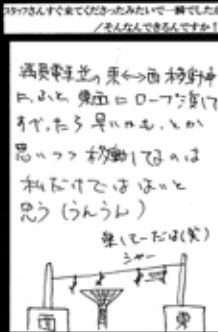 スタッフさんすぐ来てくださったみたいで一瞬でした!
/そんなんできるんですか!
満員電車並の東↔西移動中
に、ふと、東西にロープを張って
すべったら早いかも、とか
思いつつ移動してるのは
私だけではないと
思う(うんうん)
楽してーだけ(笑)
シャー
西
東